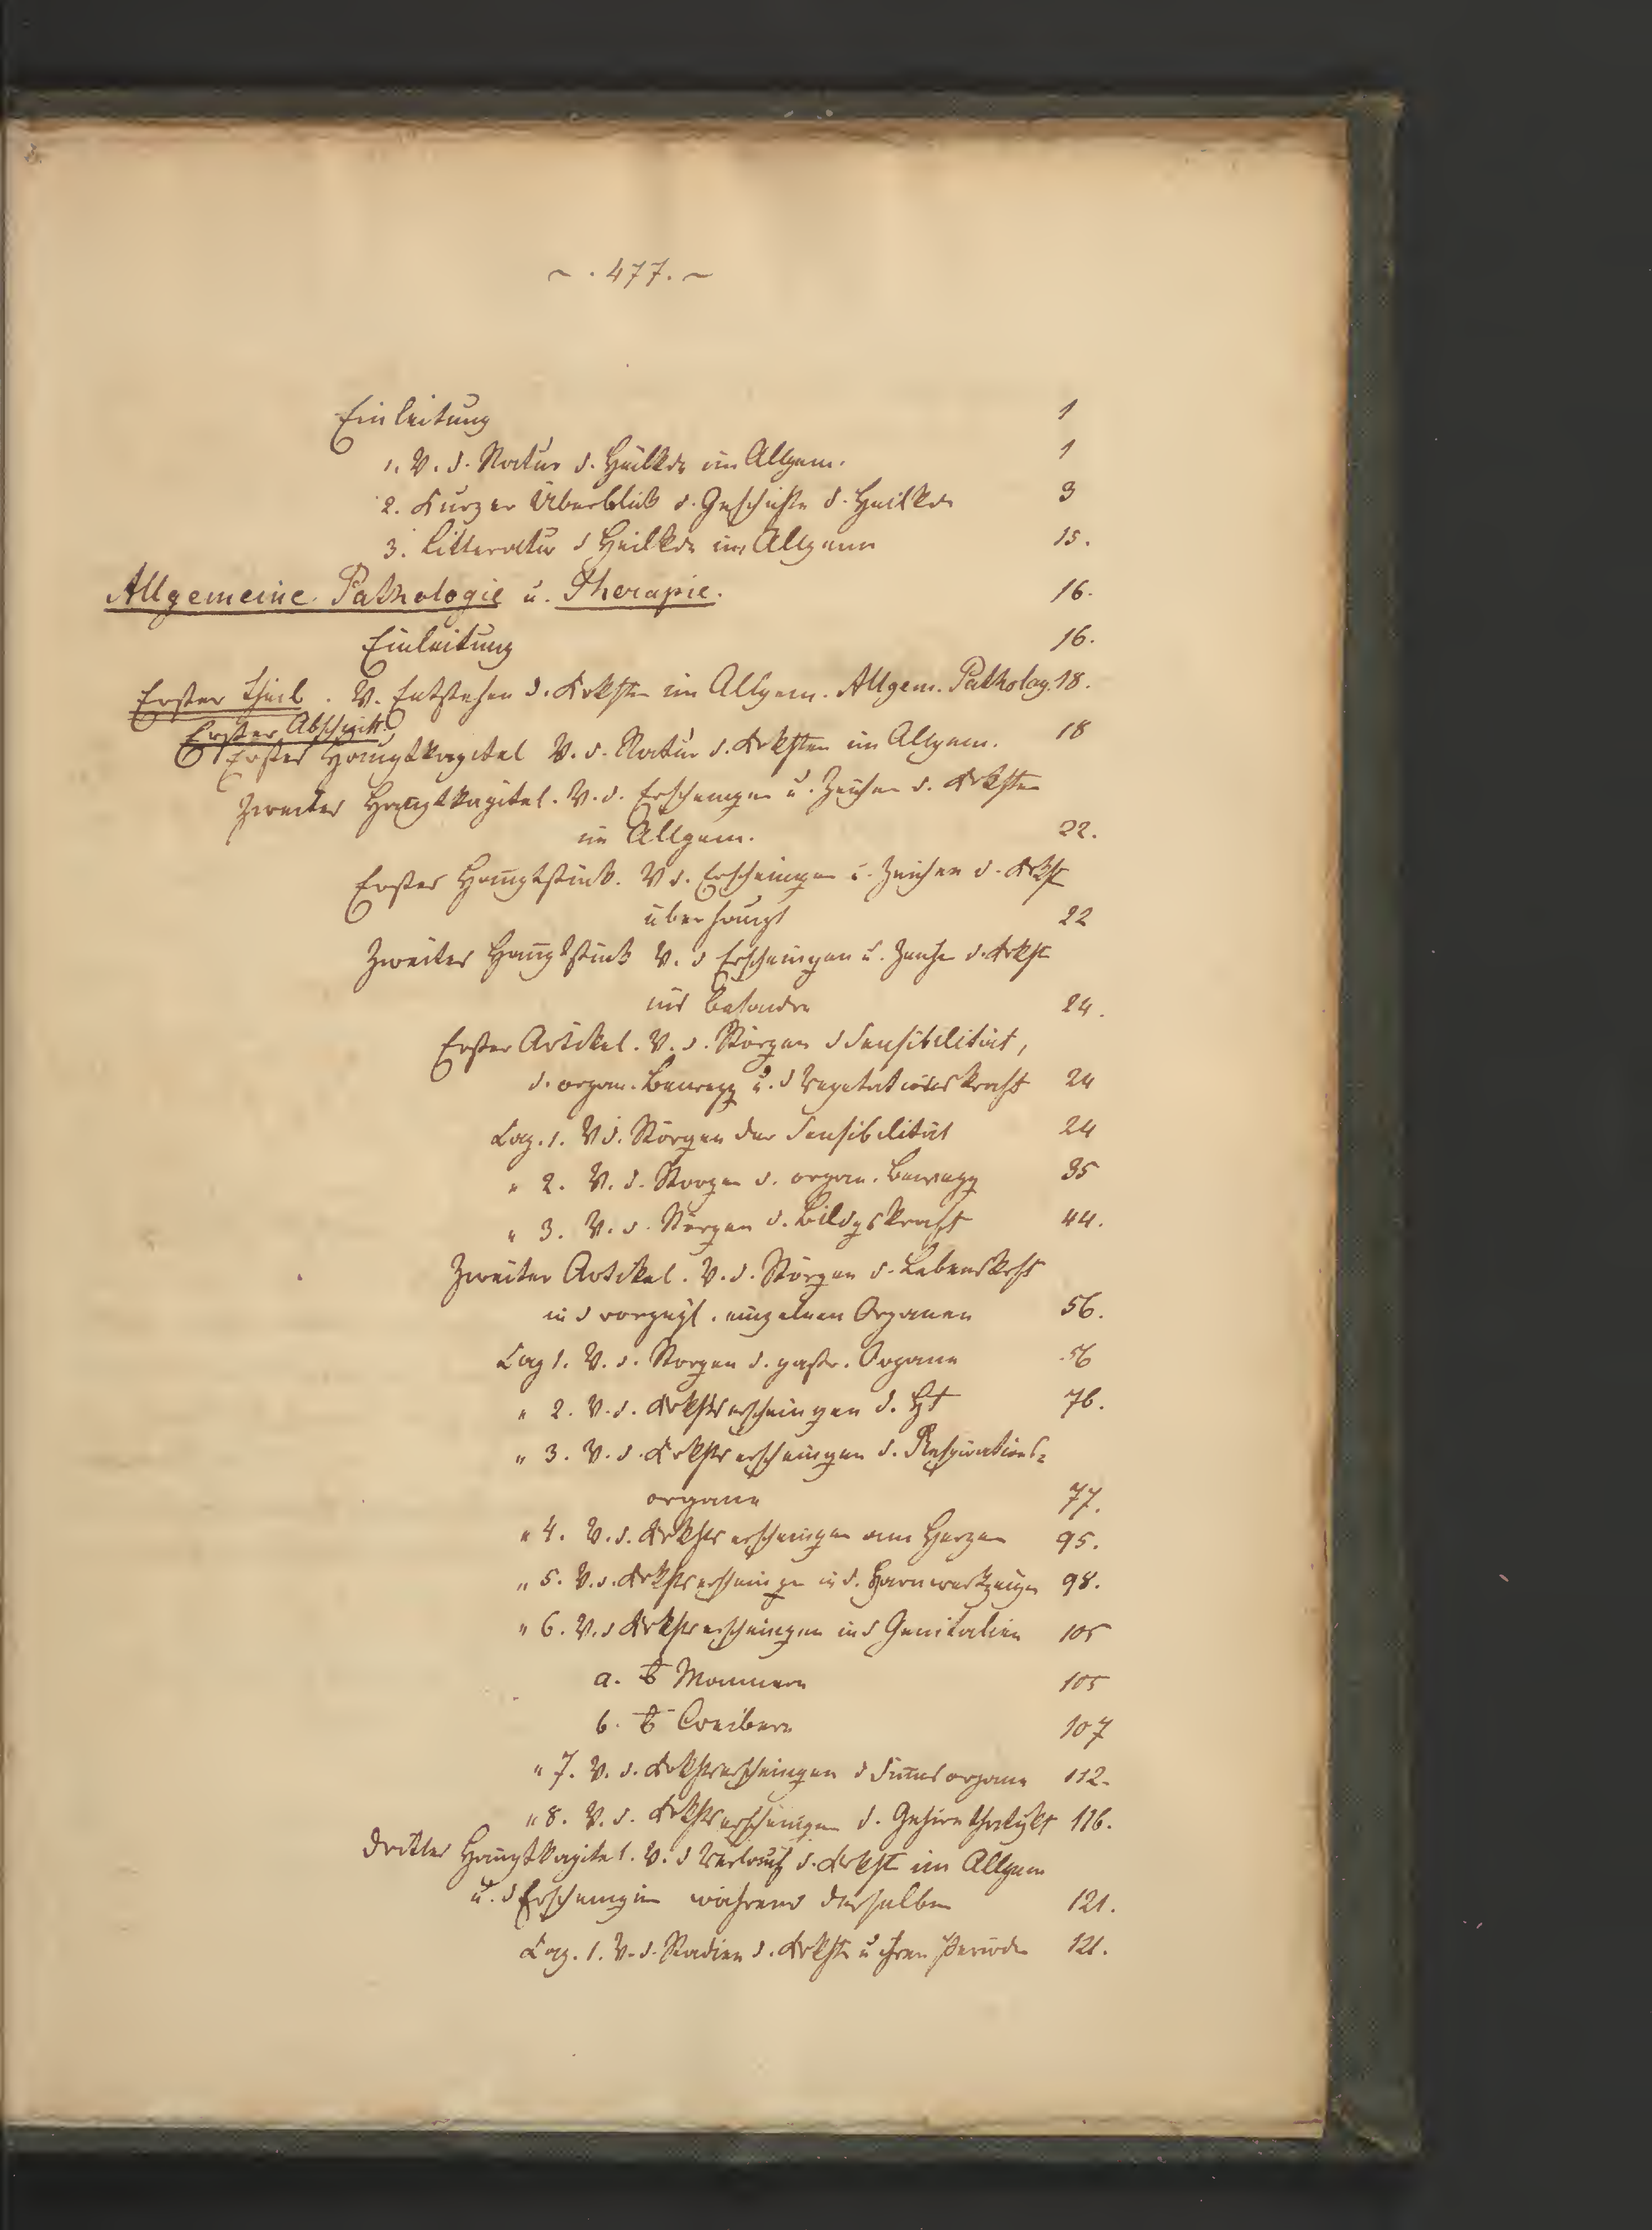 ~ . 477. ~
Einleitung 1
1. V. d. Natur d. Heilkde im Allgem. 1
2. Kurzer Überblick d. Geschichte d. Heilkde 3
3. Litteratur d Heilkde im Allgem 15.
Allgemeine Pathologie u. Therapie. 16.
Einleitung 16.
Erster Theil. V. Entstehen d. Krkhten im Allgem. Allgem. Patholog. 18.
Erster Abschnitt.
Erstes Hauptkapitel V. d. Natur d. Krkhten im Allgem. 18
Zweites Hauptkapitel. V. d. Erscheingen u. Zeichen d. Krkhten
im Allgem. 22.
Erstes Hauptstück. V d. Erscheingen u. Zeichen d. Krkht
überhaupt 22
Zweites Hauptstück V. d Erscheingen u. Zeiche d. Krkht
ins besondre 24.
Erster Artikel. V. d. Störgen d Sensibilität,
d. organ. Bewegg u. d Vegetationskraft 24
Kap. 1. V d. Störgen der Sensibilität 24
" 2. V. d. Störgen d. organ. Bewegg 35
" 3. V. d. Störgen d. Bildgskraft 44.
Zweiter Artikel. V. d. Störgen d. Lebenskrft
in d vorzügl. einzelnen Organen 56.
Kap 1. V. d. Störgen d. gastr. Organe 56
" 2. V. d. Krkhtserscheingen d. Ht 76.
" 3. V. d. Krkhtserscheingen d. Respirations-
organe 77.
" 4. V. d. Krkhtserscheingen am Herzen 95.
" 5. V. d. Krkhtserscheingen in d. Harnwerkzeugen 98.
" 6. V. d Krkhtserscheingen in d Genitalien 105
a. Männern 105
b. Weibern 107
" 7. V. d. Krkhtserscheingen d Sinnesorgane 112.
" 8. V. d. Krkhtserscheingen d. Gehirnthätigkt 116.
Drittes Hauptkapitel. V. d Verlauf d. Krkht im Allgem
u. d Erscheingen während derselben 121.
Kap. 1. V. d. Stadien d. Krkht u ihren Perioden 121.